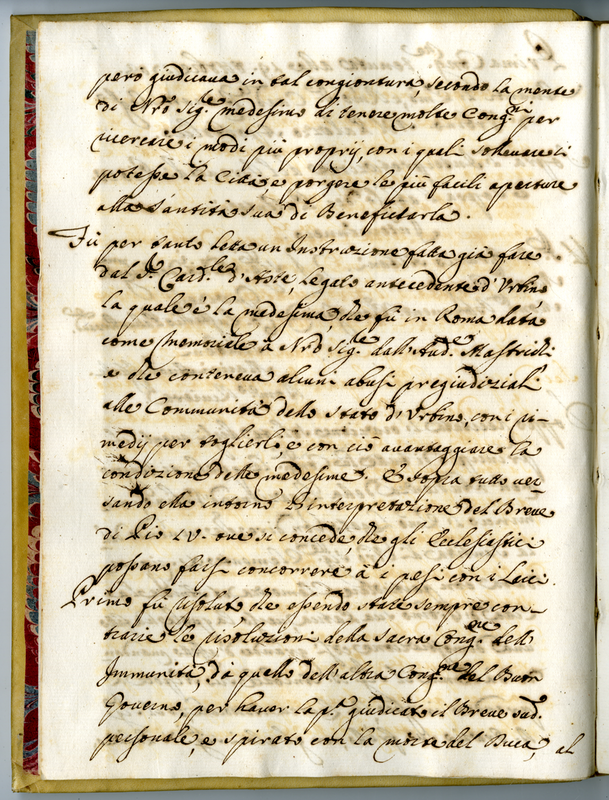 però giudicava in tal congiontura, secondo la mente
di Nrõ Sig.re medesimo di tenere molte Cong.ni per
ricercare i modi più proprij, con i quali sollevare si
potesse la Città e porgere le più facili aperture
alla Santità sua di Beneficiarla.
Fù per tanto letta un Instruzione fatta già fare
dal S.e Card.le d'Aste, Legato antecedente d'Urbino
la quale è la medesima, che fù in Roma data
come memoriale à Nrõ Sig.re dall'Aud.e Mastrilli
e che conteneva alcuni abusi pregiudiziali
alle Communità dello stato d'Urbino, con i ri-
medij per toglierli, e con ciò avantaggiare la
condizione delle medesime. E sopra tutto ver-
sando ella intorno l'interpretazione del Breve
di Pio IV. ove si concede, che gli Ecclesiastici
possano farsi concorrere à i pesi con i Laici.
Primo fù risoluto che essendo state sempre con-
trarie le risoluzioni della sacra Cong.ne dell'
Immunità, da quello dell'altra Cong.ne del Buon
Governo, per haver la p.a giudicato il Breve sud.o
personale, e spirato con la morte del Duca, al